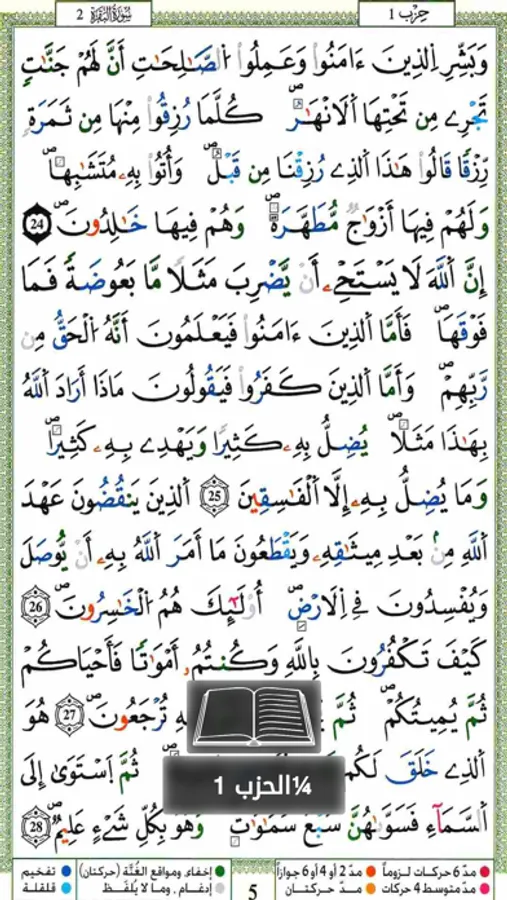 سُورَةُ البَقَرَةِ 2
حِزْب 1
وَبَشِّرِ اِ۬لذِينَ ءَامَنُواْ وَعَمِلُواْ اُ۬لصَّٰلِحَٰتِ أَنَّ لَهُمْ جَنَّٰتٖ
تَجْرِے مِن تَحْتِهَا اَ۬لَانْهَٰرُۖ كُلَّمَا رُزِقُواْ مِنْهَا مِن ثَمَرَةٖ
رِّزْقاٗ قَالُواْ هَٰذَا اَ۬لذِے رُزِقْنَا مِن قَبْلُۖ وَأُتُواْ بِهِۦ مُتَشَٰبِهاٗۖ
وَلَهُمْ فِيهَا أَزْوَٰجٞ مُّطَهَّرَةٞۖ وَهُمْ فِيهَا خَٰلِدُونَۖ 24
إِنَّ اَ۬للَّهَ لَا يَسْتَحْيِۦ أَنْ يَّضْرِبَ مَثَلاٗ مَّا بَعُوضَةٗ فَمَا
فَوْقَهَاۖ فَأَمَّا اَ۬لذِينَ ءَامَنُواْ فَيَعْلَمُونَ أَنَّهُ اُ۬لْحَقُّ مِن
رَّبِّهِمْۖ وَأَمَّا اَ۬لذِينَ كَفَرُواْ فَيَقُولُونَ مَاذَا أَرَادَ اَ۬للَّهُ
بِهَٰذَا مَثَلاٗۖ يُضِلُّ بِهِۦ كَثِيراٗ وَيَهْدِے بِهِۦ كَثِيراٗۖ
وَمَا يُضِلُّ بِهِۦ إِلَّا اَ۬لْفَٰسِقِينَ 25 اَ۬لذِينَ يَنقُضُونَ عَهْدَ
اَ۬للَّهِ مِنۢ بَعْدِ مِيثَٰقِهِۦ وَيَقْطَعُونَ مَا أَمَرَ اَ۬للَّهُ بِهِۦ أَنْ يُّوصَلَ
وَيُفْسِدُونَ فِے اِ۬لَارْضِۖ أُوْلَٰٓئِكَ هُمُ اُ۬لْخَٰسِرُونَۖ 26
كَيْفَ تَكْفُرُونَ بِاللَّهِ وَكُنتُمُۥ أَمْوَٰتاٗ فَأَحْيَاكُمْ
ثُمَّ يُمِيتُكُمْۖ ثُمَّ تُرْجَعُونَۖ 27 هُوَ
اَ۬لذِے خَلَقَ لَكُم ثُمَّ اَ۪سْتَوَىٰ إِلَى
اَ۬لسَّمَآءِ فَسَوَّىٰهُنَّ سَبْعَ سَمَٰوَٰتٖۖ وَهُوَ بِكُلِّ شَےْءٍ عَلِيمٞۖ 28
¼الحزب 1
مدّ 6 حركات لزوماً
مدّ 2 أو 4 أو 6 جوازاً
إخفاء، ومواقع الغُنَّة (حركتان)
تفخيم
مدّ متوسط 4 حركات
مدّ حركتان
إدغام، وما لا يُلفَظ
قلقلة
5